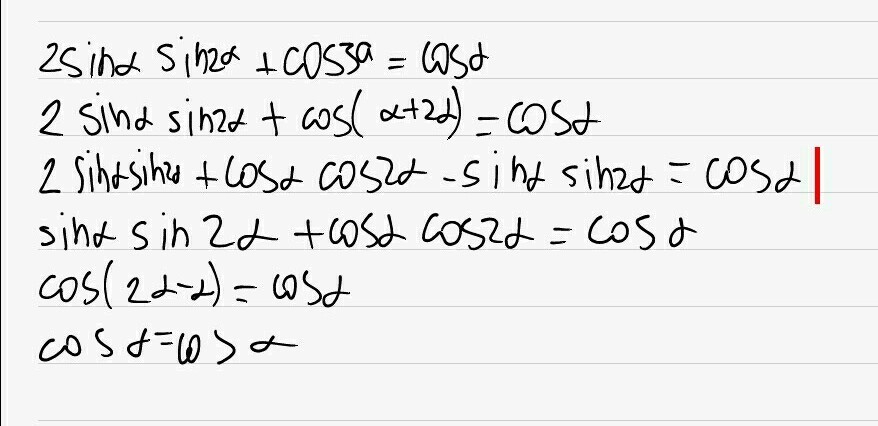 2sinα sin2α + cos3α = cosα
2 sinα sin2α + cos(α+2α) = cosα
2 sinα sin2α + cosα cos2α - sinα sin2α = cosα
sinα sin 2α + cosα cos2α = cos α
cos(2α-α) = cosα
cos α = cos α